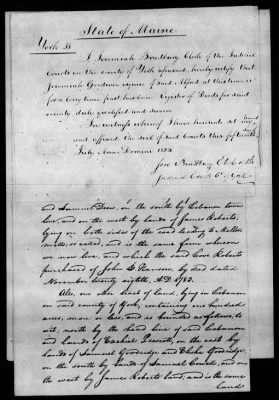 State of Maine
York ss
I Jeremiah Bradbury Clerk of the Judicial
Courts in the County of York aforesaid, hereby certify that
Jeremiah Goodwin esquire of said Alfred at this time is &
for a long time past has been Register of Deeds for said
county duly qualified and sworn
In witness whereof I have hereunto set my hand
and affixed the seal of said Courts this fifteenth
July Anno Domini 1823.
Jere Bradbury Clk of the
Judicial Courts Co of York
and Samuel Drew, on the south by Lebanon town
line, and on the west by lands of James Roberts;
lying on both sides of the road leading to
mills, so called, and is the same farm whereon
we now live, and which the said Love Roberts
purchased of John G. Rawson by deed dated
November twenty eighth, A.D. 1782.
Also, one other tract of land, lying in Lebanon
in said county of York, containing one hundred
acres, more or less, and is bounded as follows, to
wit, north by the head line of said Lebanon
and lands of Ezekiel Prescott, on the east by
lands of Samuel Goodridge and Elisha Goodridge,
on the south by lands of Samuel Cowell, and on
the west by James Roberts land, and is the same
lands